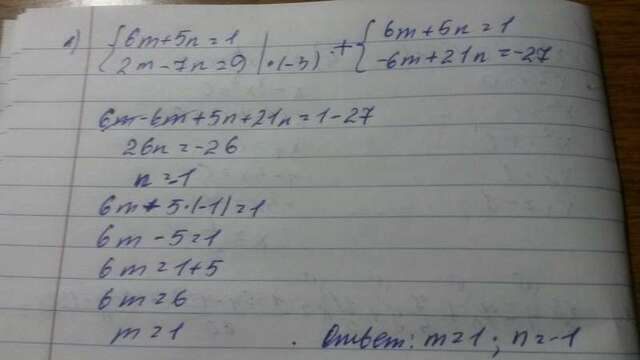 л) { 6m+5n=1 + { 6m+5n=1
{ 2m-7n=9 | ·(-3) { -6m+21n=-27
6m-6m+5n+21n=1-27
26n=-26
n=-1
6m+5·(-1)=1
6m-5=1
6m=1+5
6m=6
m=1 . Ответ: m=1; n=-1